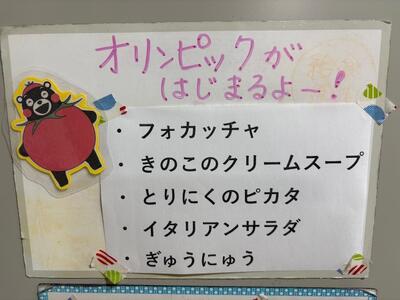 オリンピックが
はじまるよー！
・フォカッチャ
・きのこのクリームスープ
・とりにくのピカタ
・イタリアンサラダ
・ぎゅうにゅう